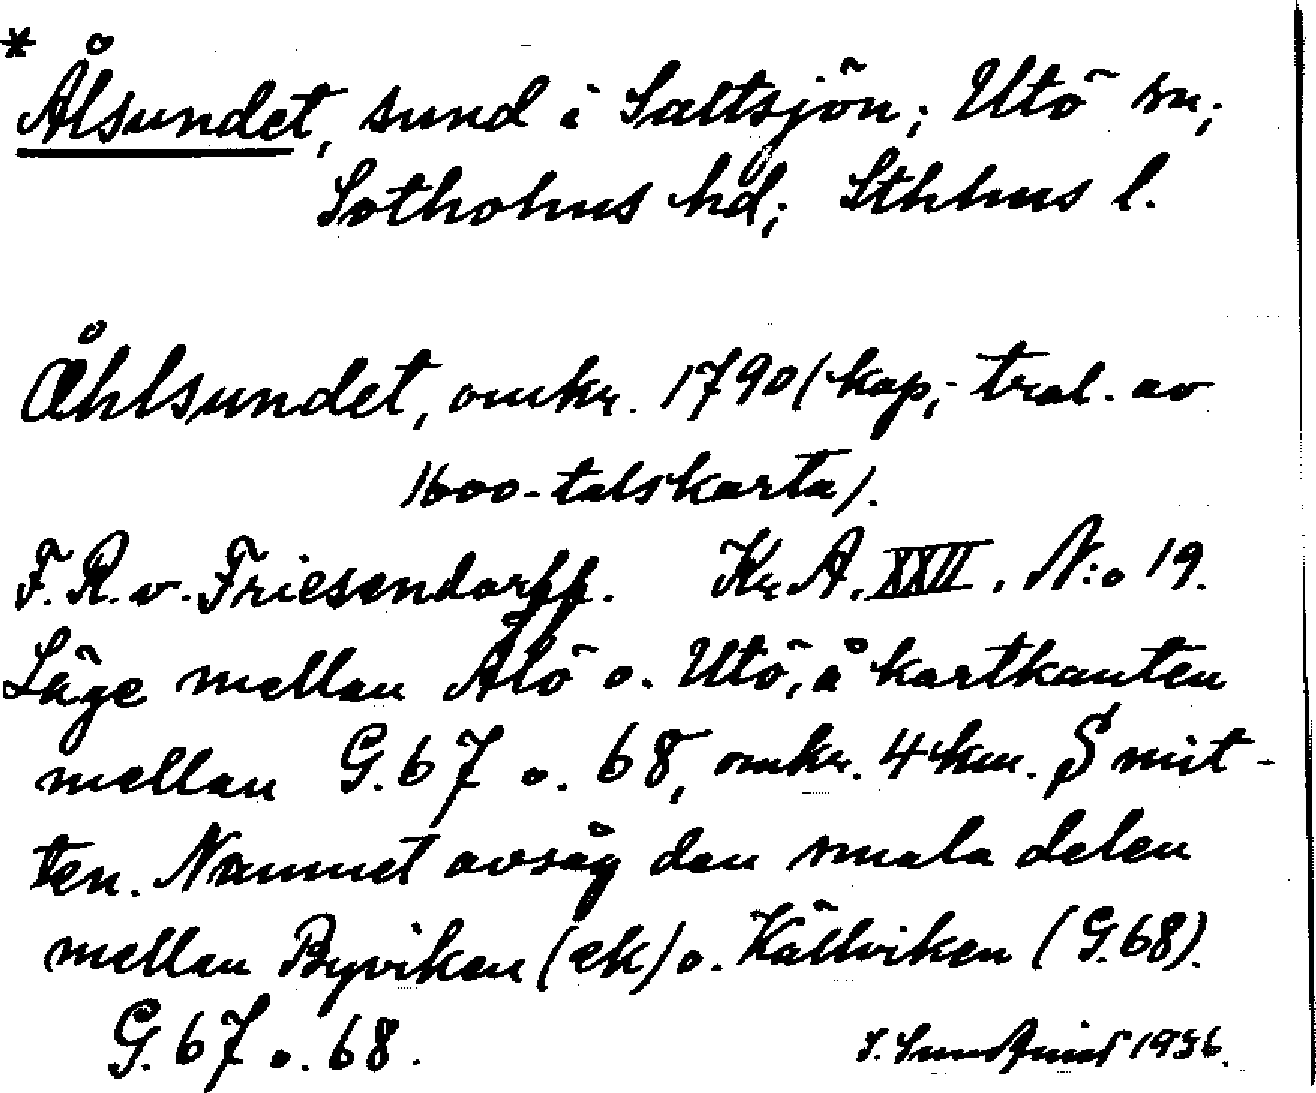 * Ålsundet, sund i Saltsjön; Utö sn;
Sotholms hd; Sthlms l.
Åhlsundet, omkr. 1790 (kop, tral. av
1600-talskarta).
F. R. v. Friesendorff. Kr. A. XXII. N:o 19.
Läge mellan Ålö o. Utö, å kartkanten
mellan G. 67 o. 68, omkr. 4 km. S mit-
ten. Namnet avsåg den smala delen
mellan Byviken (ek) o. Källviken (G. 68).
G. 67 o. 68.
I. Sundquist 1936.